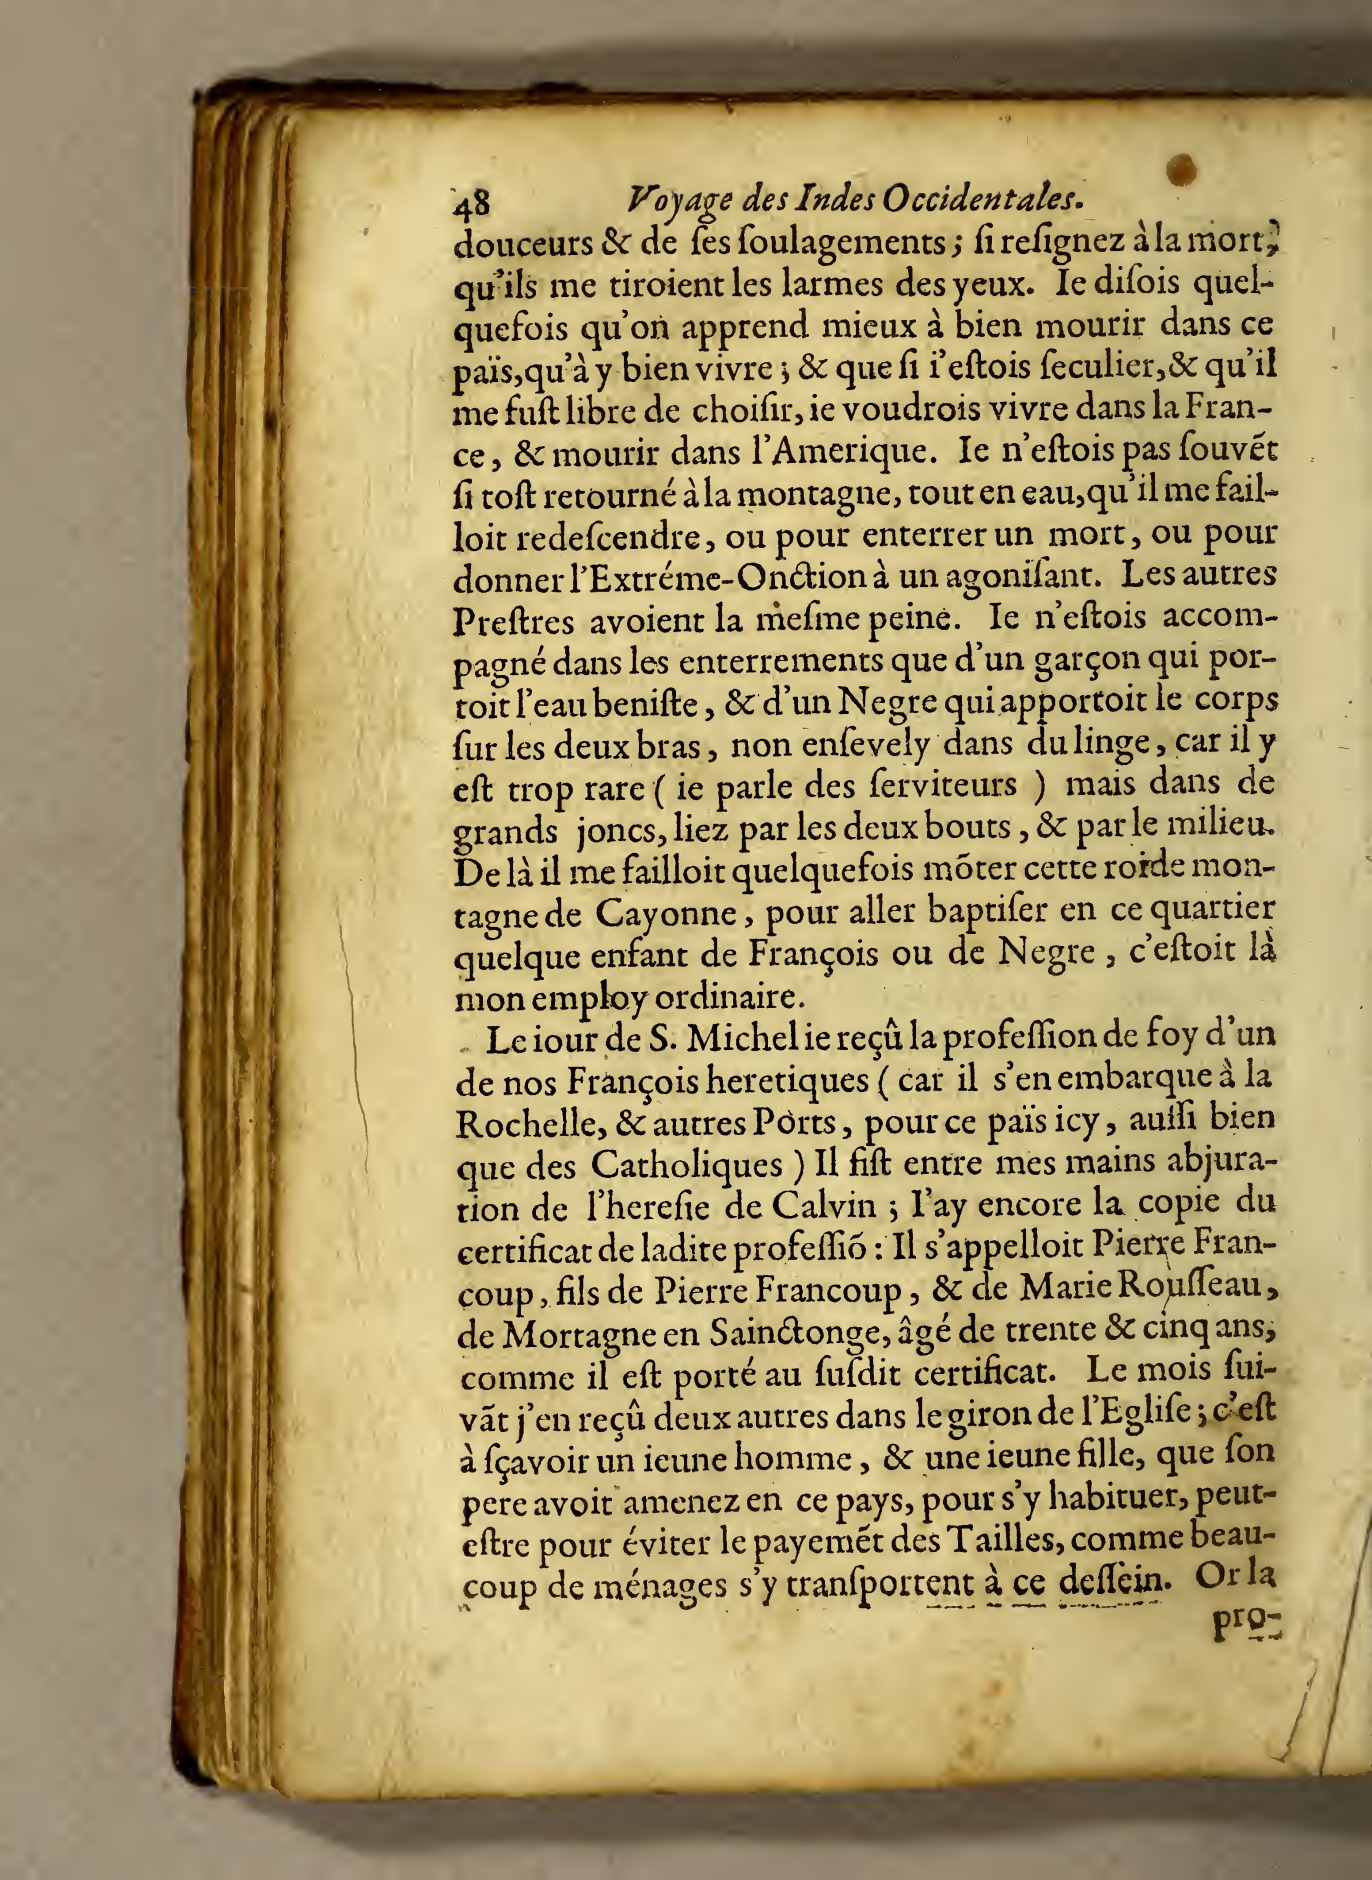 48 Voyage des Indes Occidentales.
douceurs & de ſes ſoulagements; ſi reſignez à la mort,
qu'ils me tiroient les larmes des yeux. Ie diſois quel-
quefois qu'on apprend mieux à bien mourir dans ce
païs, qu'à y bien vivre; & que ſi i'eſtois ſeculier, & qu'il
me fuſt libre de choiſir, ie voudrois vivre dans la Fran-
ce, & mourir dans l'Amerique. Ie n'eſtois pas ſouvẽt
ſi toſt retourné à la montagne, tout en eau, qu'il me fail-
loit redeſcendre, ou pour enterrer un mort, ou pour
donner l'Extréme-Onction à un agoniſant. Les autres
Preſtres avoient la meſme peine. Ie n'eſtois accom-
pagné dans les enterrements que d'un garçon qui por-
toit l'eau beniſte, & d'un Negre qui apportoit le corps
ſur les deux bras, non enſevely dans du linge, car il y
eſt trop rare ( ie parle des ſerviteurs ) mais dans de
grands joncs, liez par les deux bouts, & par le milieu.
De là il me failloit quelquefois mõter cette roide mon-
tagne de Cayonne, pour aller baptiſer en ce quartier
quelque enfant de François ou de Negre, c'eſtoit là
mon employ ordinaire.
Le iour de S. Michel ie reçû la profeſſion de foy d'un
de nos François heretiques ( car il s'en embarque à la
Rochelle, & autres Ports, pour ce païs icy, auſſi bien
que des Catholiques ) Il fiſt entre mes mains abjura-
tion de l'hereſie de Calvin; I'ay encore la copie du
certificat de ladite profeſſiõ: Il s'appelloit Pierre Fran-
coup, fils de Pierre Francoup, & de Marie Rouſſeau,
de Mortagne en Sainctonge, âgé de trente & cinq ans,
comme il eſt porté au ſuſdit certificat. Le mois ſui-
vãt j'en reçû deux autres dans le giron de l'Egliſe; c'eſt
à ſçavoir un ieune homme, & une ieune fille, que ſon
pere avoit amenez en ce pays, pour s'y habituer, peut-
eſtre pour éviter le payemẽt des Tailles, comme beau-
coup de ménages s'y tranſportent à ce deſſein. Or la
pro-